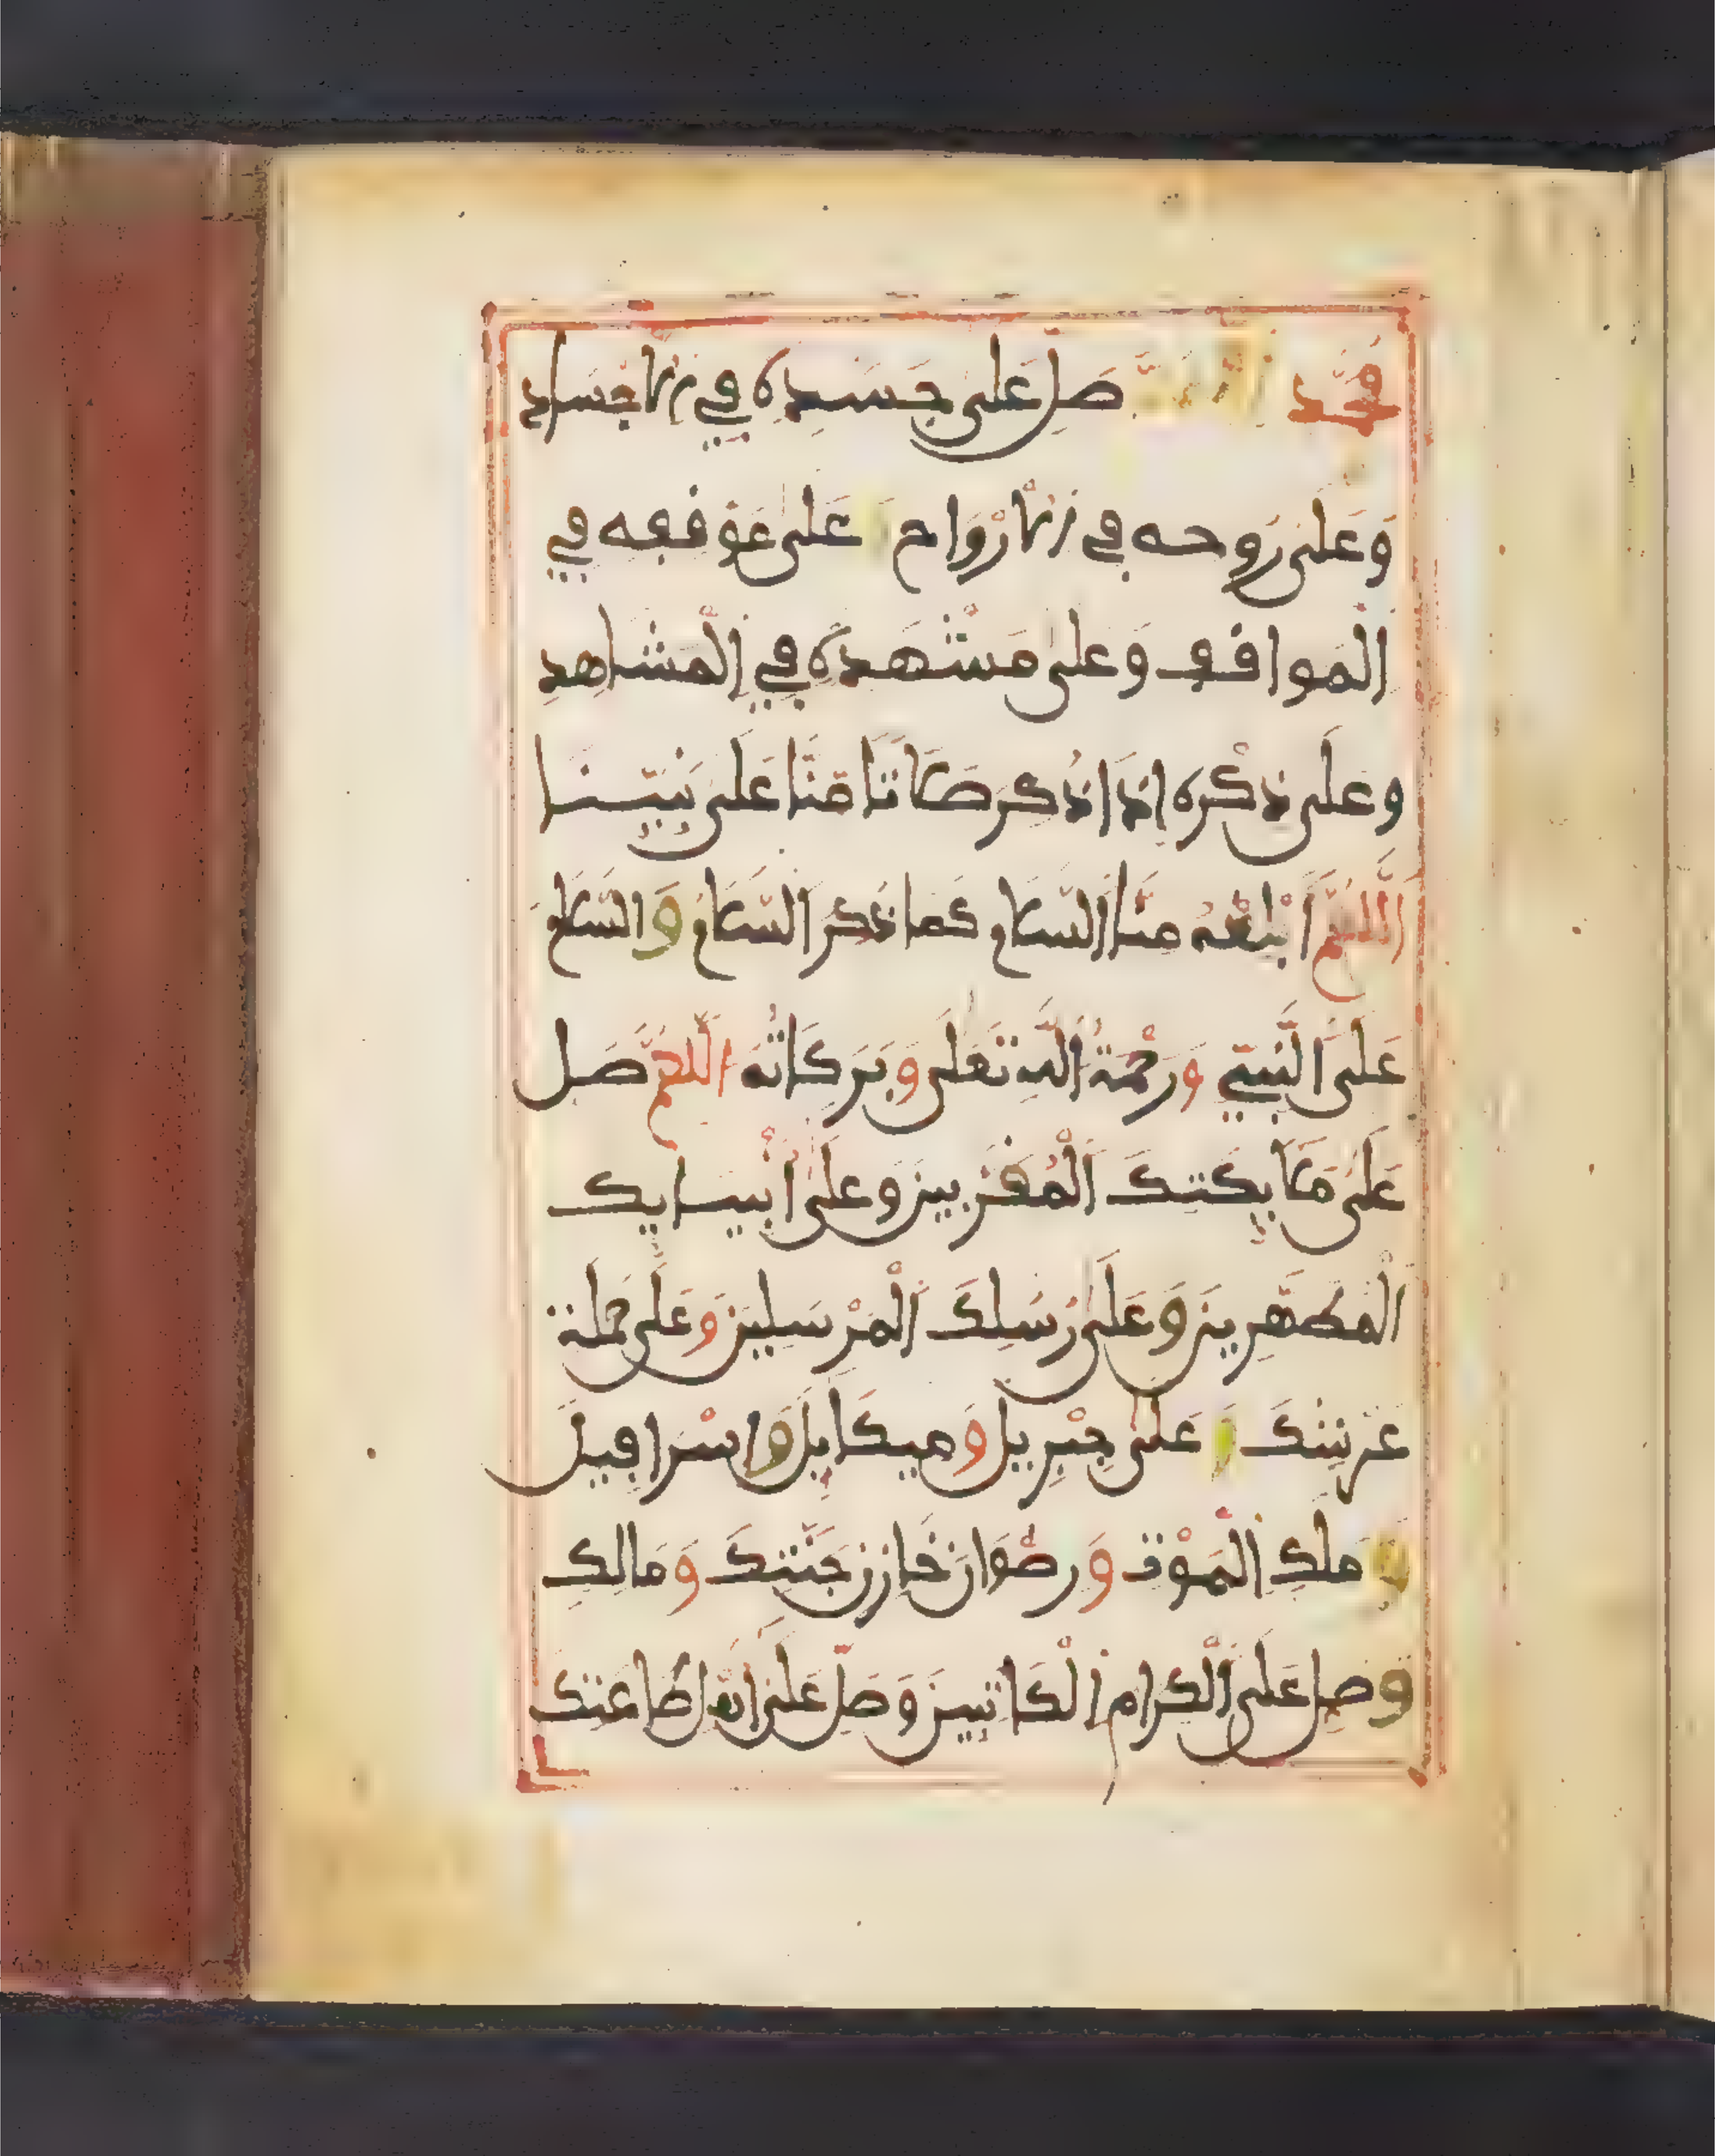 مُحَمَّد اللَّهُمَّ صَلِّ عَلَى جَسَدِهِ فِي الْأَجْسَادِ
وَعَلَى رُوحِهِ فِي الْأَرْوَاحِ وَعَلَى مَوْقِفِهِ فِي
الْمَوَاقِفِ وَعَلَى مَشْهَدِهِ فِي الْمَشَاهِدِ
وَعَلَى ذِكْرِهِ إِذَا ذُكِرَ صَلَاةً مِنَّا عَلَى نَبِيِّنَا
اَللَّهُمَّ أَبْلِغْهُ مِنَّا السَّلَامَ كَمَا ذُكِرَ السَّلَامُ وَالسَّلَامُ
عَلَى النَّبِيِّ وَرَحْمَةُ اللَّهِ تَعَلَى وَبَرَكَاتُهُ اللَّهُمَّ صَلِّ
عَلَى مَلَائِكَتِكَ الْمُقَرَّبِينَ وَعَلَى أَنْبِيَائِكَ
الْمُطَهَّرِينَ وَعَلَى رُسُلِكَ الْمُرْسَلِينَ وَعَلَى حَمَلَةِ
عَرْشِكَ وَعَلَى جِبْرِيلَ وَمِيكَايِلَ وَإِسْرَافِيلَ
وَمَلَكِ الْمَوْتِ وَرِضْوَانَ خَازِنِ جَنَّتِكَ وَمَالِكٍ
وَصَلِّ عَلَى الْكِرَامِ الْكَاتِبِينَ وَصَلِّ عَلَى أَهْلِ طَاعَتِكَ